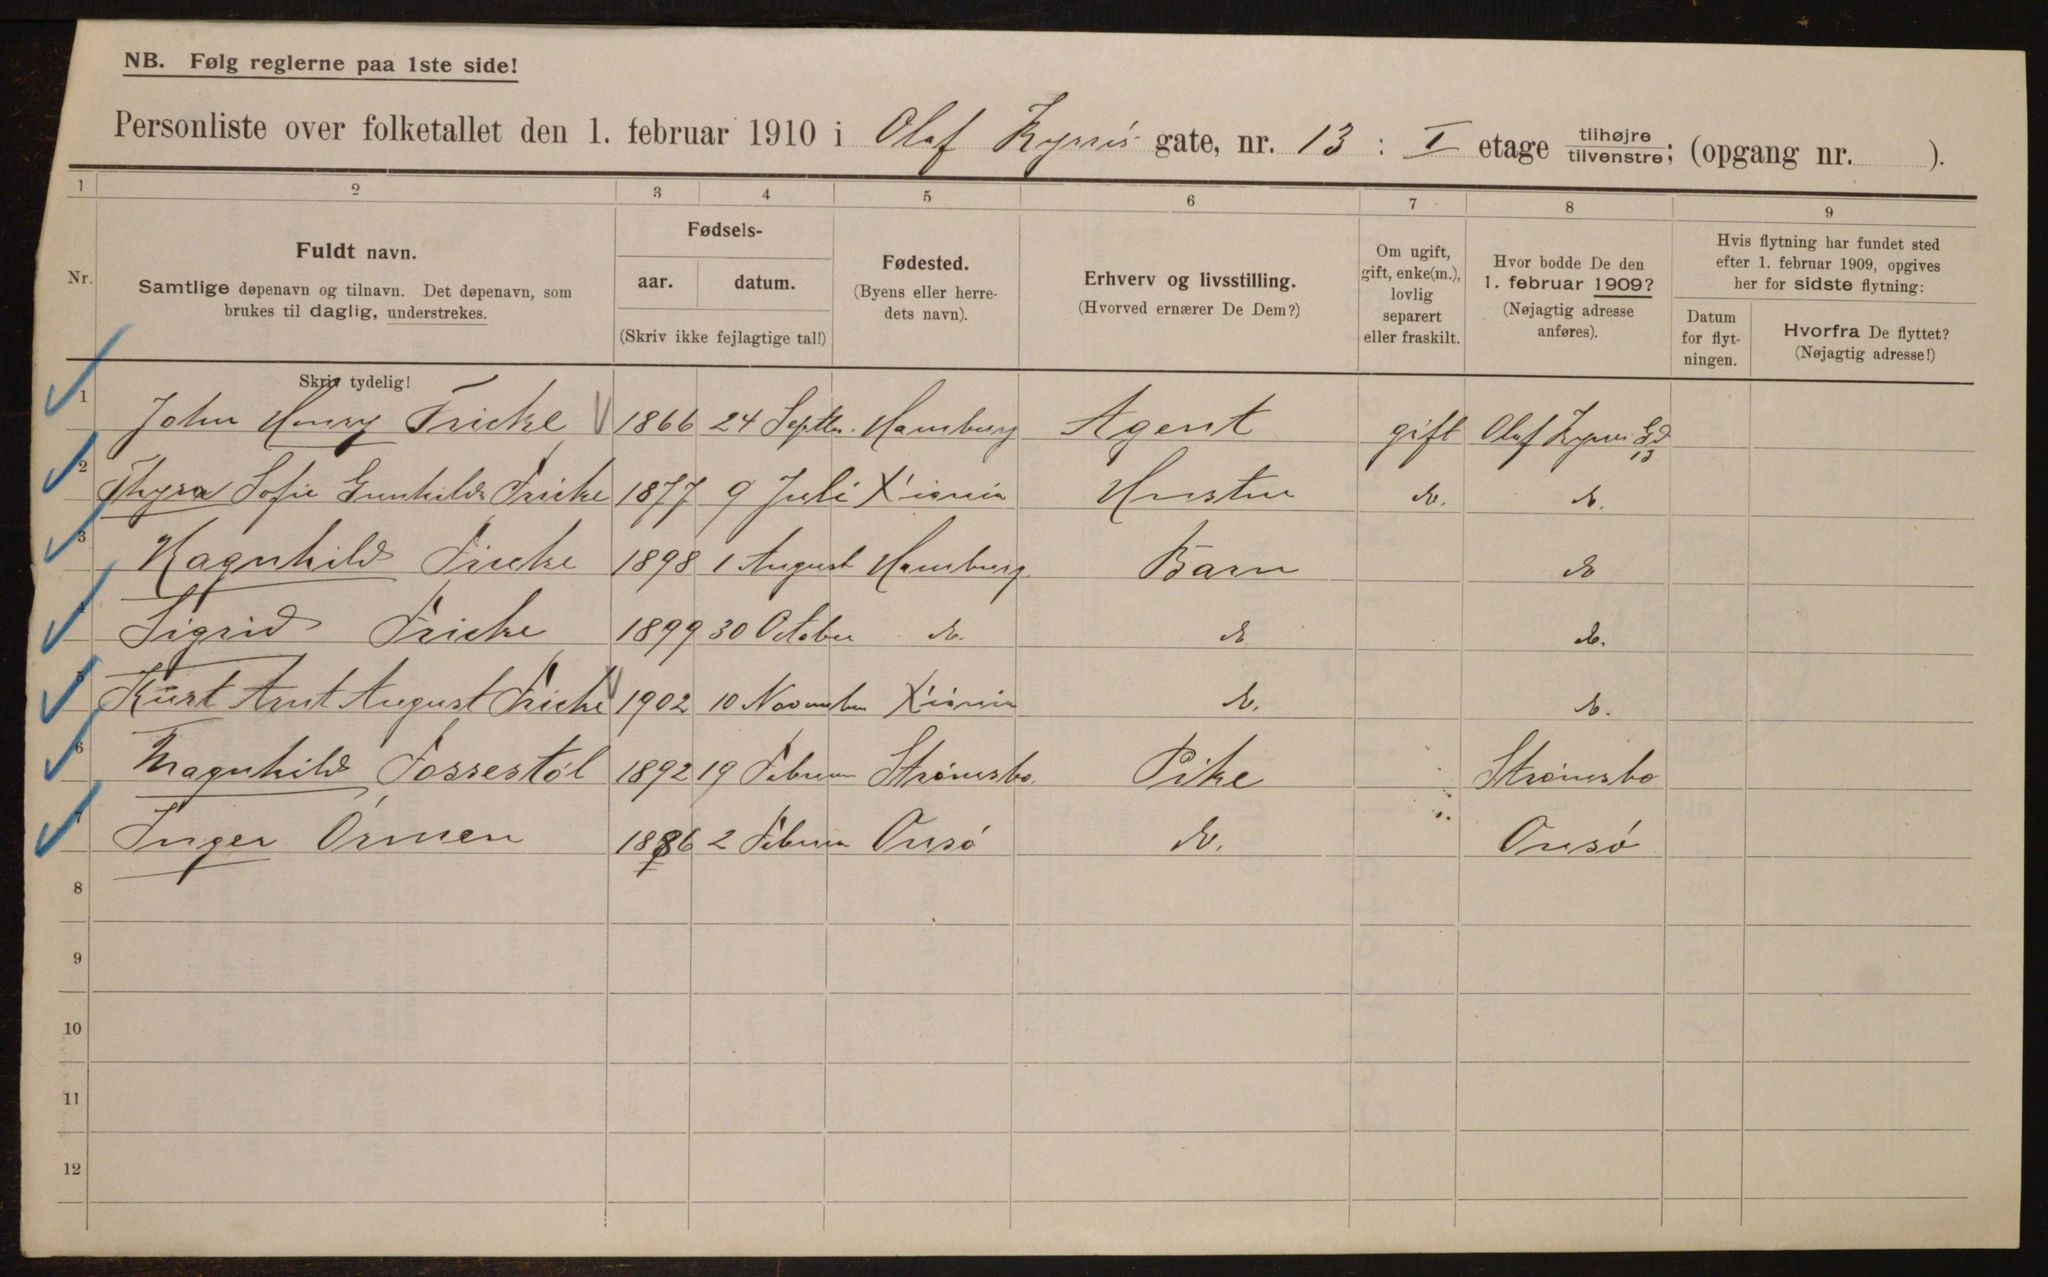 NB. Følg reglerne paa 1ste side!
Personliste over folketallet den 1. februar 1910 i Olaf Ryes's gate, nr. 13 : I etage tilhøjre/tilvenstre; (opgang nr. ).
1 2 3 4 5 6 7 8 9
Nr.
Fuldt navn.
Samtlige døpenavn og tilnavn. Det døpenavn, som
brukes til daglig, understrekes.
Fødsels-
aar. datum.
(Skriv ikke fejlagtige tal!)
Fødested.
(Byens eller herre-
dets navn).
Erhverv og livsstilling.
(Hvorved ernærer De Dem?)
Om ugift,
gift, enke(m.),
lovlig
separert
eller fraskilt.
Hvor bodde De den
1. februar 1909?
(Nøjagtig adresse
anføres).
Hvis flytning har fundet sted
efter 1. februar 1909, opgives
her for sidste flytning:
Datum
for flyt-
ningen.
Hvorfra De flyttet?
(Nøjagtig adresse!)
Skriv tydelig!
1 John Henry Fricke 1866 24 Septbr. Hamburg Agent gift Olaf Ryes Gd 13
2 Thyra Sofie Gunhilde Fricke 1877 9 Juli X'iania Hustru do. do.
3 Ragnhild Fricke 1898 1 August Hamburg. Barn do
4 Sigrid Fricke 1899 30 October do. do do.
5 Kurt Arnt August Fricke 1902 10 November X'iania do. do.
6 Magnhild Fossestøl 1892 19 Februar Strømsbo. Pike Strømsbo
7 Inger Örmen 1886 2 Februar Onsö do. Onsö
8
9
10
11
12